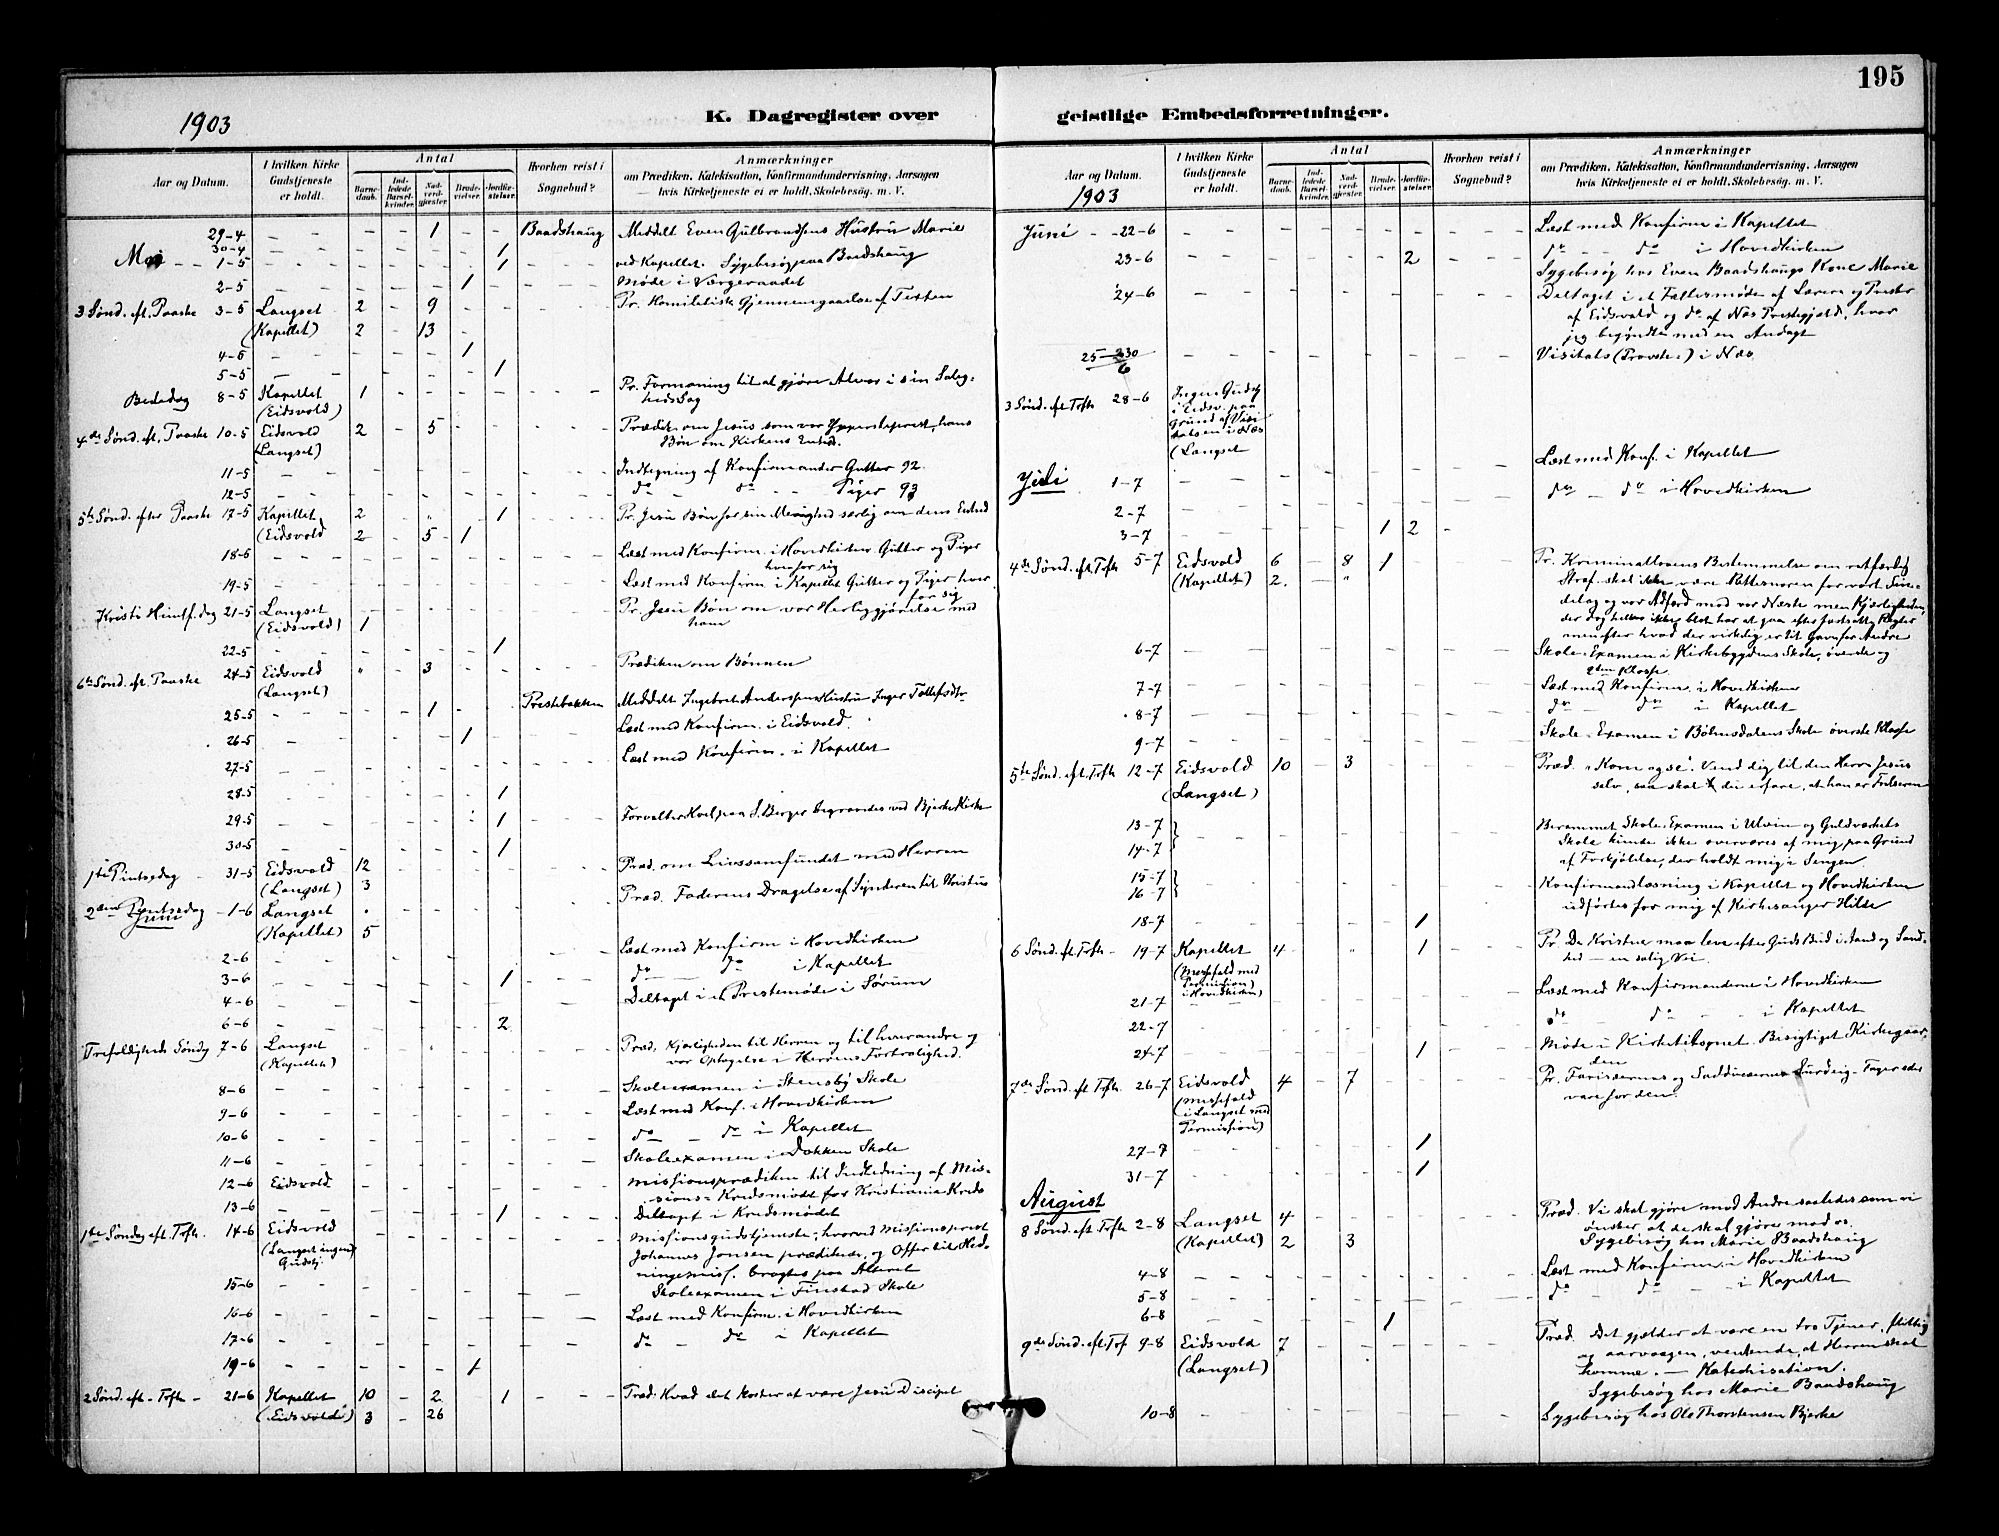 195
1903
K. Dagregister over geistlige Embedsforretninger.
Aar og Datum.
I hvilken Kirke Gudstjeneste er holdt.
Antal
Barnedaab.
Indledede Barselkvinder.
Nadverdgjester.
Brudevielser.
Jordfæstelser.
Hvorhen reist i Sognebud?
Anmærkninger
om Prædiken, Katekisation, Konfirmandundervisning, Aarsagen
hvis Kirketjeneste ei er holdt, Skolebesøg, m. V.
29-4 – – – 1 – – Baadshaug Meddelt Even Gulbrandsens Hustru Marie
30-4 – – 1
Mai – – 1-5 – – 1 ved Kapellet. Sygebesøg paa Baadshaug
2-5 – – 1 Møde i Værgeraadet
3 Sønd. eft. Paaske 3-5 Langset 2 – 9 Pr. Homiletisk Gjennemgaaelse af Texten
(Kapellet) 2 – 13
4-5 – – 1
5-5 – – 1
Bededag 8-5 Kapellet 1 Pr. Formaning til at gjøre Alvor i sin Salig-
(Eidsvold) hedssag
4de Sønd. eft. Paaske 10-5 Eidsvold 2 – 5 Prædik. om Jesus som vor Ypperstepræst, hans
(Langset) Bøn om Kirkens Enhed.
11-5 – – Indtegning af Konfirmander Gutter 92.
12-5 – – do – do – – Piger 93
5te Sønd. efter Paaske 17-5 Kapellet 2 – " – 1 Pr. Jesu Bøn for sin Menighed særlig om dens Enhed
(Eidsvold 2 – 5 – 1
18-5 – – Læst med Konfirm. i Hovedkirken Gutter og Piger
hver for sig
19-5 – – Læst med Konfirm i Kapellet Gutter og Piger hver
for sig
Kristi Himlf. dag 21-5 Langset Pr. Jesu Bøn om vor Herliggjørelse med
(Eidsvold) 1 ham
22-5 – – 1
6te Sønd. eft. Paaske 24-5 Eidsvold " – 3 Prædiken om Bønnen
(Langset)
25-5 – – 1 Prestebakken Meddelt Ingebret Andersens Hustru Inger Tollefsdtr
26-5 – – 1 Læst med Konfirm. i Eidsvold
27-5 – – Læst med Konfirm. i Kapellet
28-5 – – 1
29-5 – – 1 Forvalter begravedes ved Bjerke Kirke
30-5 – – 1
1ste Pintsedag – 31-5 Eidsvold 12 Præd. om Livssamfundet med Herren
(Langset) 3
2den Pintsedag – 1-6 Langset . Præd. Faderens Dragelse af Synderen til Kristus
Juni (Kapellet) 5
2-6 – – Læst med Konfirm i Hovedkirken
3-6 – – 1 do – do i Kapellet
4-6 – – Deltaget i et Prestemøde i Sørum
6-6 – – 2
Trefoldigheds Søndg 7-6 Langset Præd. Kjærligheden til Herren og til hverandre og
(Kapellet) vor Optagelse i Herrens Fortrolighed.
8-6 – – Skoleexamen i Stensby Skole
9-6 – – Læst med Konf. i Hovedkirken
10-6 – – do – do i Kapellet
11-6 – – Skoleexamen i Dokken Skole
12-6 Eidsvold – – Missionsprædiken til Indledning af Mis-
sions-Kredsmødet for Kristiania Kreds
13-6 – – 1 Deltaget i Kredsmødet
1ste Søndag eft. Trft. 14-6 Eidsvold Missionsgudstjeneste, hvorved Missionsprest
(Langset ingen Johannes Jonsen prædikede, og Offer til Hed-
Gudstj. ningemiss. bragtes paa Alteret
15-6 – – Skoleexamen i Finstad Skole
16-6 – – Læst med Konfirm. i Hovedkirken
17-6 – – do – do i Kapellet
19-6 – – 1
2 Sønd. eft. Trft. – 21-6 Kapellet 10 – 2 – 1 Præd. Hvad det koster at være Jesu Discipel
(Eidsvold) 3 – 26
Aar og Datum.
1903
I hvilken Kirke Gudstjeneste er holdt.
Antal
Barnedaab.
Indledede Barselkvinder.
Nadverdgjester.
Brudevielser.
Jordfæstelser.
Hvorhen reist i Sognebud?
Anmærkninger
om Prædiken, Katekisation, Konfirmandundervisning, Aarsagen
hvis Kirketjeneste ei er holdt, Skolebesøg, m. V.
Juni – – 22-6 – – Læst med Konfirm i Kapellet
do – do i Hovedkirken
23-6 – – 2 Sygebesøg hos Even Baadshaugs Kone Marie
24-6 – – Deltaget i et Fællesmøde af Lærere og Prester
af Eidsvold og do af Næs Prestegjeld, hvor
jeg begyndte med en Andagt
25–30/6 – – Visitats (Provste-) i Næs
3 Sønd. eft Trft 28-6 Ingen Gudstj
i Eidsv. paa
Grund af Visi-
tatsen i Næs
(Langset
Læst med Konf. i Kapellet
Juli 1-7 – – do – do i Hovedkirken
2-7 – –
3-7 – – 1 2
4de Sønd. eft. Trft 5-7 Eidsvold 6 – 8 1 Pr. Kriminallovens Bestemmelse om retfærdig
(Kapellet) 2. – " Straf skal ikke være Rettesnoren for vort Sin-
delag og vor Adfærd mod vor Næste men Kjærligheden,
der dog heller ikke blot har at gaa efter fastsatte Regler
men efter hvad der virkelig er til Gavn for Andre
6-7 – – Skole-Examen i Kirkebygdens Skole, øverste og
2den Klasse
7-7 – – Læst med Konfirm. i Hovedkirken
8-7 – – do – do i Kapellet
9-7 – – Skole-Examen i Bøhnsdalens Skole øverste Klasse
5te Sønd. eft. Trft 12-7 Eidsvold 10 – 3 Præd. "Kom og se". Vend dig til den Herre Jesus
(Langset) selv, saa skal du erfare, at han er Frelseren
13-7 Berammet Skole-Examen i Ulvin og Guldverkets
14-7 Skole kunde ikke overværes af mig, paa Grund
af Forkjølelse, der holdt mig i Sengen
15-7 Konfirmandlæsning i Kapellet og Hovedkirken
16-7 udførtes for mig af Kirkesanger Hilse
18-7 – – 1
6 Sønd. eft. Trft – 19-7 Kapellet 4 – " 1 Pr. De Kristne maa leve efter Guds Bud i Aand og Sand-
(Messefald med hed – en salig Vei.
Permission)
i Hovedkirken)
21-7 – – Læst med Konfirmanderne i Hovedkirken
22-7 – – do – do – – i Kapellet
24-7 – – 1 Møde i Kirketilsynet. Besigtiget Kirkegaar-
den
7de Sønd. eft Trft. 26-7 Eidsvold 4 – 7 Pr. Farisæernes og Sadducæernes Surdeig – Tager eder
(Messefald vare for den.
i Langset med
Permission)
27-7 – – 1
31-7 – – 1
August
8 Sønd. eft Trft 2-8 Langset 4 Præd. Vi skal gjøre mod Andre saaledes som vi
(Kapellet) 2 3 ønsker, at de skal gjøre mod os.
Sygebesøg hos Marie Baadshaug
4-8 – – Læst med Konfirm. i Hovedkirken
5-8 – – do do – i Kapellet
6-8 – – 1
9de Sønd. eft Trf 9-8 Eidsvold 7 Præd. Det gjælder at være en tro Tjener, flittig
(Langset) og aarvaagen, ventende, at Herren skal
komme. – Katechisation.
Sygebesøg hos Marie Baadshaug
10-8 – – Sygebesøg hos Ole Thorstensen Bjerke